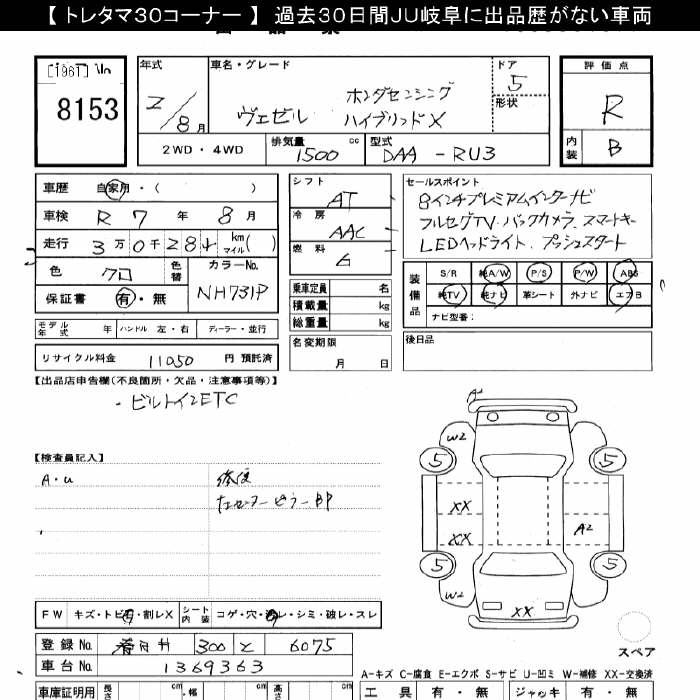 【 トレタマ30コーナー 】 過去30日間JU岐阜に出品歴がない車両
8153
年式
2/8月
車名・グレード
ヴェゼル
ホンダセンシング
ハイブリッドX
ドア
5
形状
評価点
R
内装
B
2WD ・ 4WD
排気量
1500 cc
型式
DAA - RU3
車歴 自家用・( )
車検 R 7 年 8 月
走行 3万0千28 km マイル ( )
色 クロ 色替
カラーNo. NH731P
保証書 有・無
モデル年式 年 ハンドル 左・右 ディーラー・並行
リサイクル料金 11050 円 預託済
シフト AT
冷房 AAC
燃料 G
乗車定員 名
積載量 kg
総重量 kg
名変期限
月 日
セールスポイント
8インチプレミアムインターナビ
フルセグTV バックカメラ スマートキー
LEDヘッドライト プッシュスタート
装備品
S/R 純A/W P/S P/W ABS
純TV 純ナビ 革シート 外ナビ エアB
ナビ型番：
後日品
【出品店申告欄(不良箇所・欠品・注意事項等)】
- ビルトインETC
【検査員記入】
A・U
修復
A2
W2
5
5
XX
XX
A2
5
5
W2
XX
スペア
FW キズ・トビ石・割レX シート内装 コゲ・穴・スレ・シミ・破レ・スレ
登録No. 春日井 300 と 6075
車台No. 1369363
A-キズ C-腐食 E-エクボ S-サビ U-凹ミ W-補修 XX-交換済
車庫証明用 長さ cm ・幅 cm 高さ cm
工具 有・無 ジャッキ 有・無